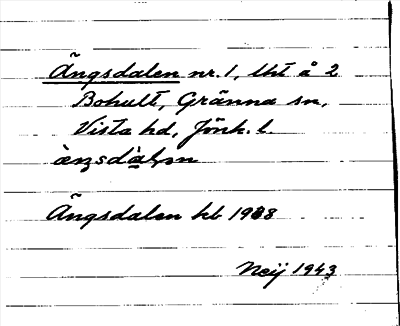 Ängsdalen nr. 1, lht å 2
Bohult, Gränna sn,
Vista hd, Jönk. l.
àŋsdàlən
Ängsdalen kb 1938
Neij 1943